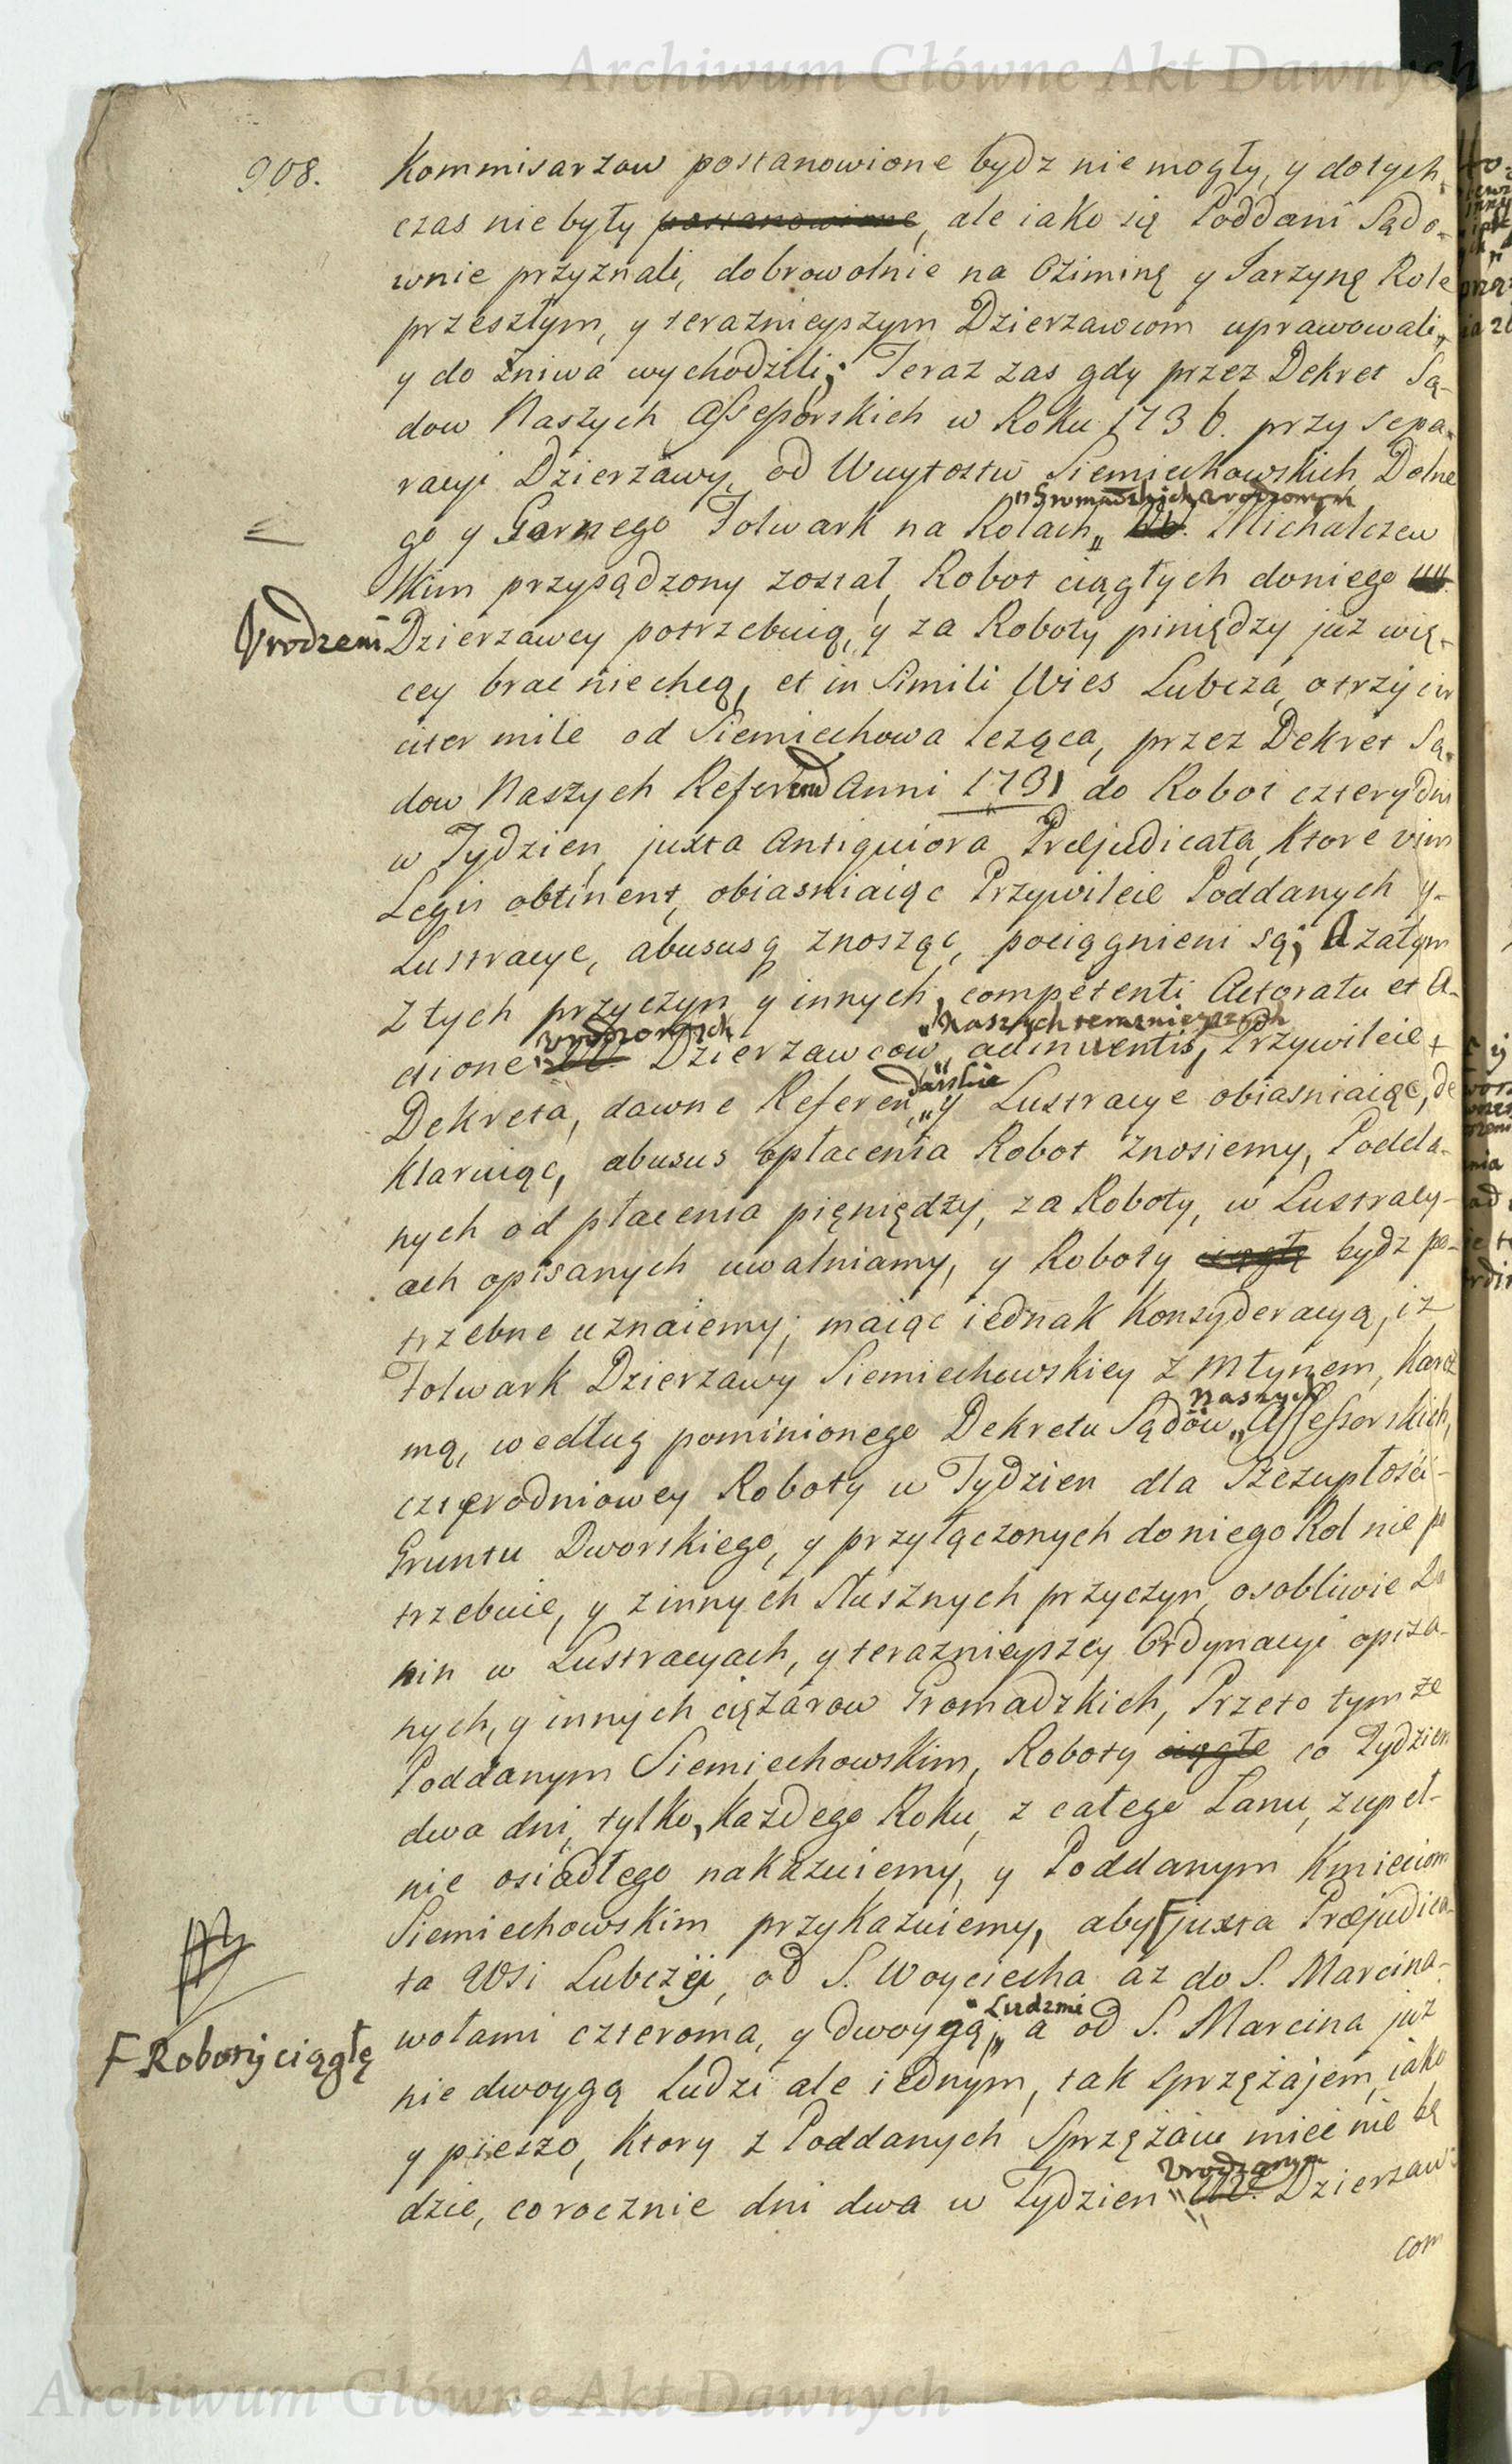 Archiwum Główne Akt Dawnych
908.
Kommisarzow postanowione bydz nie mogły, y dotych,
czas nie były postanowione, ale iako się Poddani Sądo-
wnie przyznali, dobrowolnie na Oziminę y Jarzynę Role
przeszłym, y teraznieyszym Dzierzawcom uprawowali,
y do żniwa wychodzili; Teraz zas gdy przez Dekret Są-
dow Naszych Assessorskich w Roku 1736. przy sepa-
racyi Dzierzawy, od Wuytostw Siemiechowskich Dolne
"Gromadzkich, Urodzonym
go y Gornego Folwark na Rolach„ Michalczew
skim przysądzony został, Robot ciągłych doniego
Urodzeni
Dzierzawcy potrzebuią, y za Roboty piniędzy już wię-
cey brac niechcą, et in Simili Wies Lubcza, o trzy
mile od Siemiechowa leząca, przez Dekret Są-
dow Naszych Referend Anni 1731 do Robot cztery dni
w Tydzien, juxta Antiquiora Præjudicata, Ktore vim
Legis obtinent, obiasniaiąc Przywileie Poddanych y-
Lustracye, abususą znosząc, pociągnieni są; A zatym
Z tych przyczyn y innych, competenti Actoratu et A-
Urodzonych
"Naszych teraznieyszych
ctione" Dzierzawcow„ adinventis, Przywileie
darskie
Dekreta, dawne Referen„y Lustracye obiasniaiąc, de
klaruiąc, abusus opłacenia Robot znosiemy, Podda-
nych od płacenia pięniędzy, za Roboty, w Lustracy-
ach opisanych uwalniamy, y Roboty ciągłe bydz po-
trzebne uznaiemy; maiąc iednak Konsyderacyą, iz
Folwark Dzierzawy Siemiechowskiey z Młynem, Karcz
Naszych
mą, według pominionego Dekretu Sądów„ Assessorskich,
czterodniowey Roboty w Tydzien dla Szczupłości
Gruntu Dworskiego, y przyłączonych do niego Rol nie po
trzebuie, y z innych słusznych przyczyn, osobliwie Da
nin w Lustracyach, y teraznieyszey Ordynacyi opisa-
nych, y innych ciężarow Gromadzkich, Przeto tym ze
Poddanym Siemiechowskim, Roboty ciągłe co Tydzien
dwa dni, tylko, każdego Roku, z całego Lanu, zupeł-
nie osiadłego nakazuiemy, y Poddanym Kmieciom
Siemiechowskim przykazuiemy, aby F juxta Præjudica-
ta Wsi Lubczy, od S. Woyciecha az do S. Marcina-
"Ludzmi
wołami czteroma, y dwoygą,„ a od S. Marcina już
F Roboty ciągłę
nie dwoygą Ludzi ale iednym, tak sprzężajem, iako
y pieszo, Ktory z Poddanych Sprzężaiu mieć nie bę
Urodzonym
dzie, corocznie dni dwa w Tydzien" Dzierzaw
com
Archiwum Główne Akt Dawnych